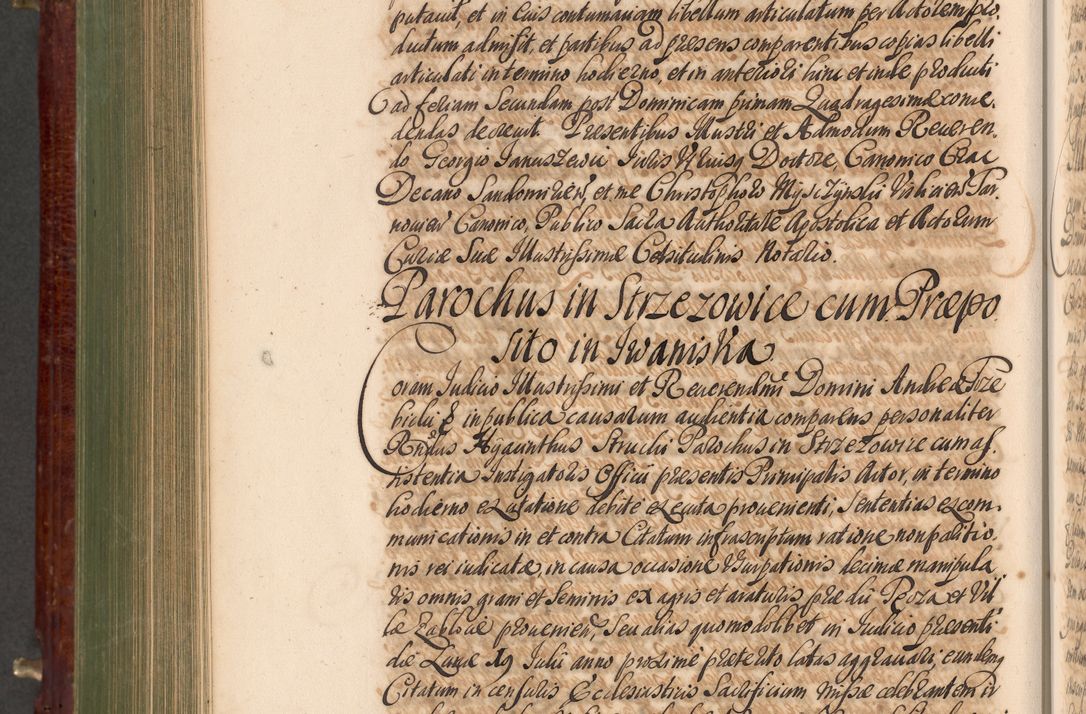 putavit, et in Eius contumaciam libellum articulatum per Actorem pro,
ductum admisit, et partibus ad presens comparentibus copias libelli
articulati in termino hodierno, et in anteriori hinc et inde producti
ad feriam Secundam post Dominicam primam Quadragesimæ conce,
dendas decrevit. Presentibus Illustri et Admodum Reveren,
do Georgio Januszewic Juris Utriusq Doctore, Canonico Crac
Decano Sandomirien, et me Christophoro Mysczynski Tar,
novien Canonico, Publico Sacra Authoritate Apostolica et Actorum
Curiæ Suæ Illustrissimæ Celsitudinis Notario.
Parochus in Strzezowice cum Præpo
sito in Iwaniska
Coram Judicio Illustrissimi et Reverendmi Domini Andreæ Trze
bicki in publica causarum audientia comparens personaliter
Rndus Hyacinthus Parochus in Strzezowice cum as,
sistentia Instigatoris Officii presentis Principalis Actor, in termino
hodierno ex citatione debite exequta provenienti, Sententias excom,
municationis in et contra Citatum infrascriptum ratione non paritio,
nis rei iudicatæ, in causa occasione Usurpationis decimæ manipula
ris omnis grani et Seminis ex agris et araturis prædii Roza et Vil
læ Zablocie provenien, Seu alias quomodolibet in Judicio presenti
die Lunæ 19 Julii anno proxime præterito latas aggravari, eundemq
Citatum in censuris Ecclesiasticis Sacrificium missæ celebrantem ir